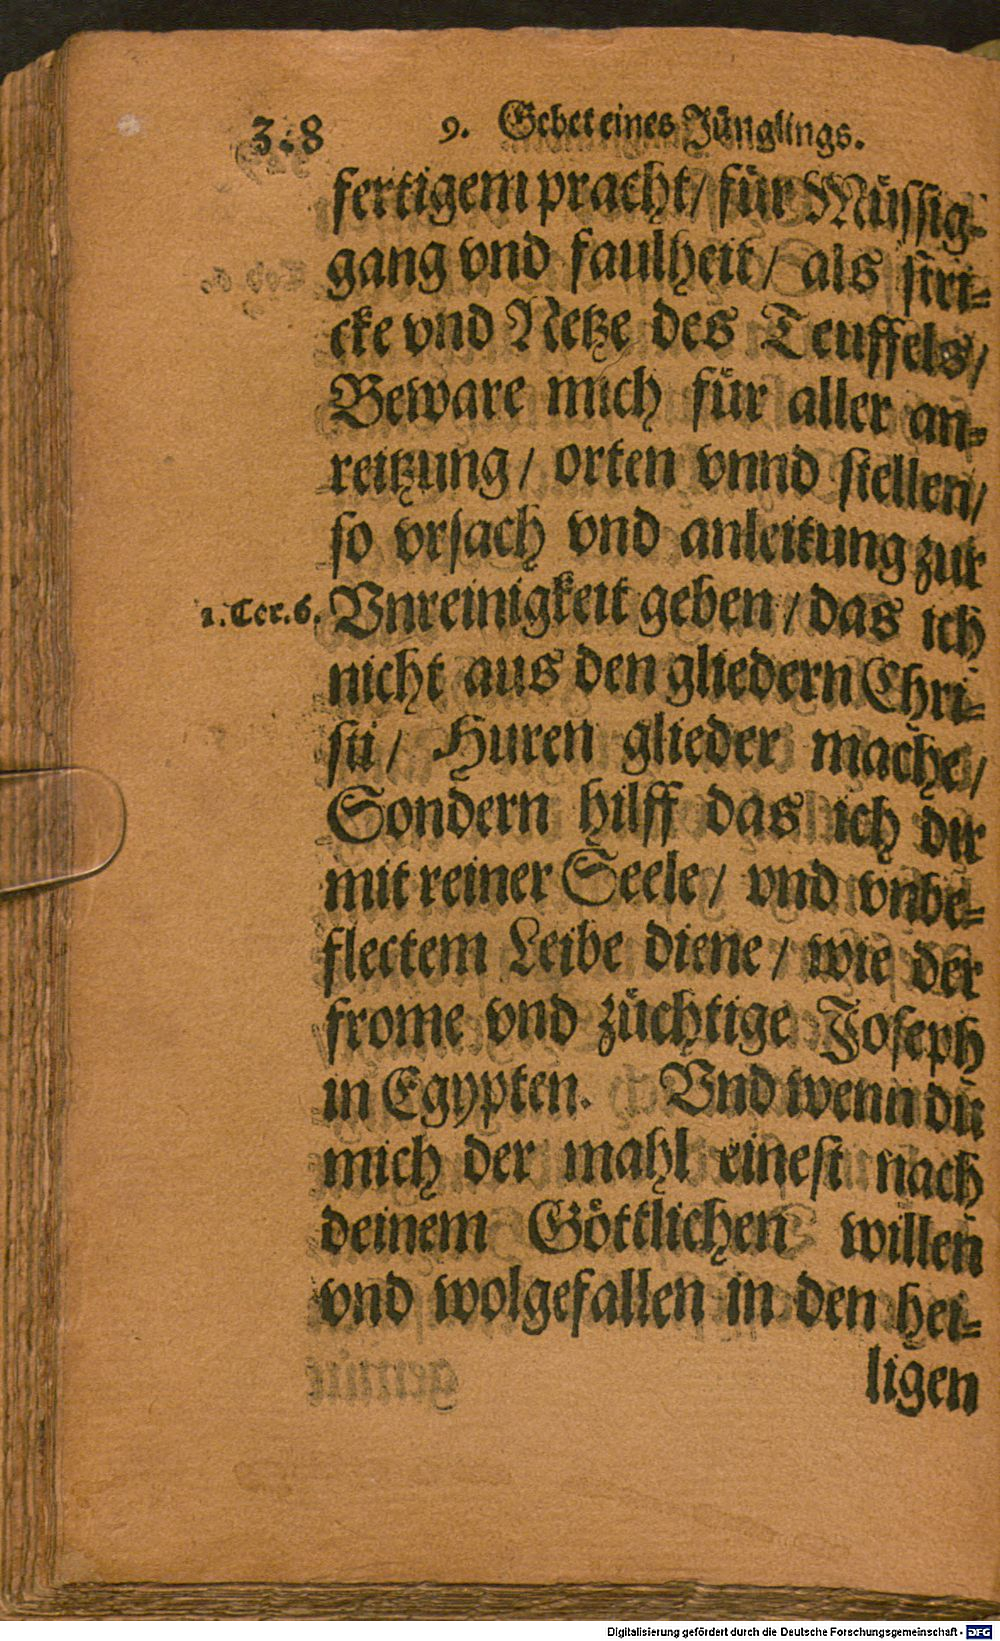 9. Gebet eines Jünglings.
fertigem pracht/ für Müssig-
gang vnd faulheit/ als stri-
cke vnd Netze des Teuffels/
Beware mich für aller an-
reitzung/ orten vnnd stellen/
so vrsach vnd anleitung zur
1. Cor. 6. Vnreinigkeit geben/ das ich
nicht aus den gliedern Chri-
sti/ Huren glieder mache/
Sondern hilff das ich dir
mit reiner Seele/ vnd vnbe-
flectem Leibe diene/ wie der
frome vnd züchtige Joseph
in Egypten. Vnd wenn du
mich der mahl einest nach
deinem Göttlichen willen
vnd wolgefallen in den hei-
ligen
Digitalisierung gefördert durch die Deutsche Forschungsgemeinschaft - DFG